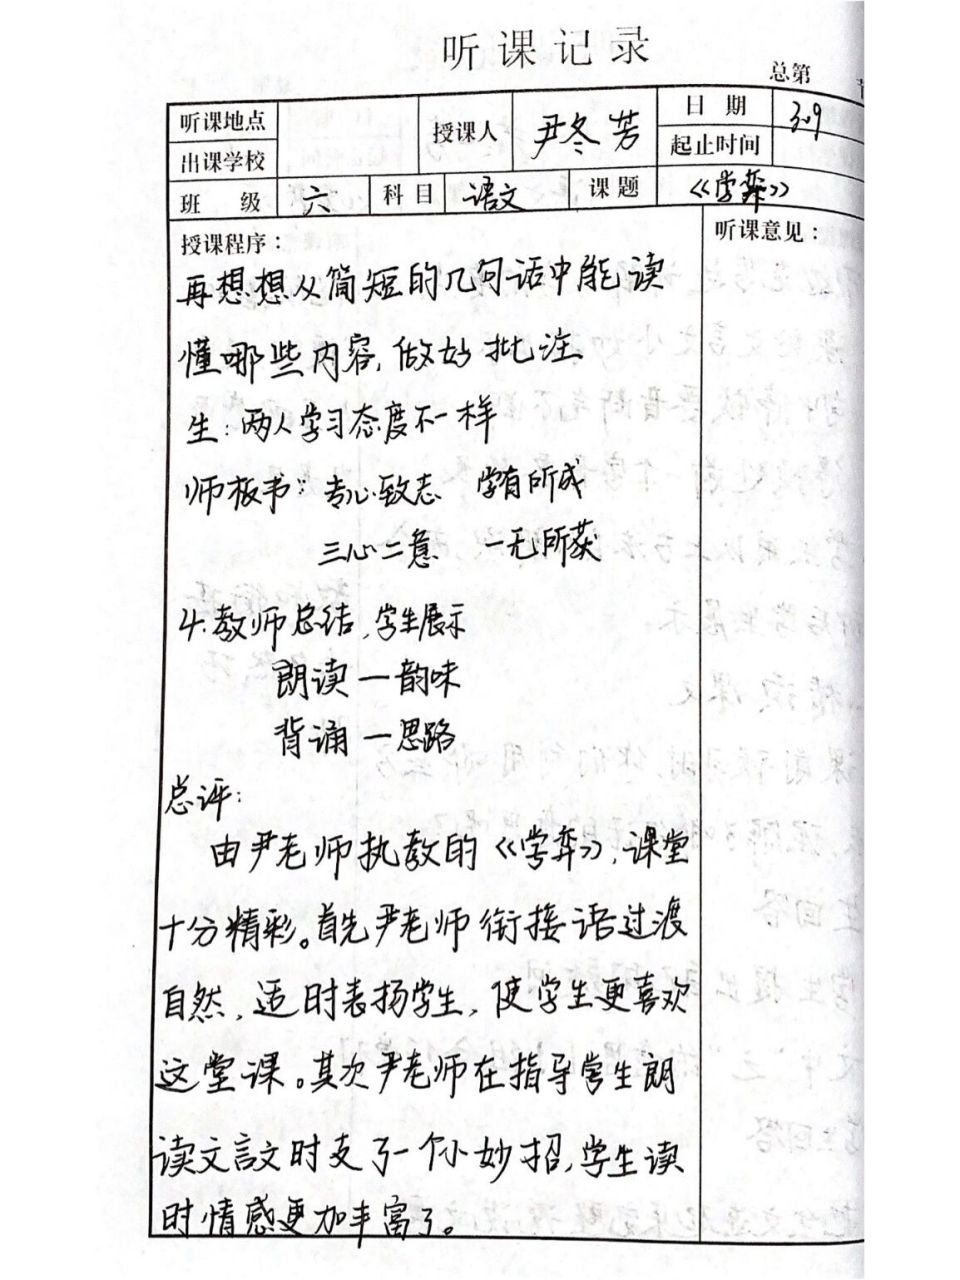 听课记录
总第
听课地点 授课人 尹冬芳 日期 3.9
出课学校 起止时间
班级 六 科目 语文 课题 《学弈》
授课程序: 听课意见:
再想想从简短的几句话中能读
懂哪些内容,做好批注
生:两人学习态度不一样
师板书:专心致志 学有所成
三心二意 一无所获
4.教师总结,学生展示
朗读—韵味
背诵—思路
总评:
由尹老师执教的《学弈》,课堂
十分精彩。首先尹老师衔接语过渡
自然,适时表扬学生,使学生更喜欢
这堂课。其次尹老师在指导学生朗
读文言文时支了一个小妙招,学生读
时情感更加丰富了。